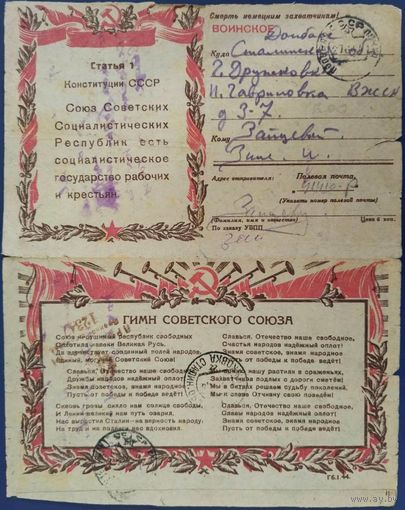 Смерть немецким захватчикам!
ВОИНСКОЕ
Статья 1
Конституции СССР
Союз Советских
Социалистических
Республик есть
социалистическое
государство рабочих
и крестьян.
Куда
Донбасс
г. Дружковка
п. Гавриловка
д 3-7.
Кому Зайцевич
И.
Адрес отправителя: Полевая почта,
(Указать номер полевой почты)
(Фамилия, имя и отчество)
Цена 6 коп.
По заказу УВПП
ГИМН СОВЕТСКОГО СОЮЗА
Союз нерушимый республик свободных
Сплотила навеки Великая Русь.
Да здравствует созданный волей народов
Единый, могучий Советский Союз!
Славься, Отечество наше свободное,
Дружбы народов надёжный оплот!
Знамя советское, знамя народное
Пусть от победы к победе ведёт!
Сквозь грозы сияло нам солнце свободы,
И Ленин великий нам путь озарил.
Нас вырастил Сталин — на верность народу,
На труд и на подвиги нас вдохновил.
Славься, Отечество наше свободное,
Счастья народов надёжный оплот!
Знамя советское, знамя народное
Пусть от победы к победе ведёт!
Мы армию нашу растили в сраженьях,
Захватчиков подлых с дороги сметём!
Мы в битвах решаем судьбу поколений,
Мы к славе Отчизну свою поведём!
Славься, Отечество наше свободное,
Славы народов надёжный оплот!
Знамя советское, знамя народное
Пусть от победы к победе ведёт!
Г6.I.44.
www.ay.by